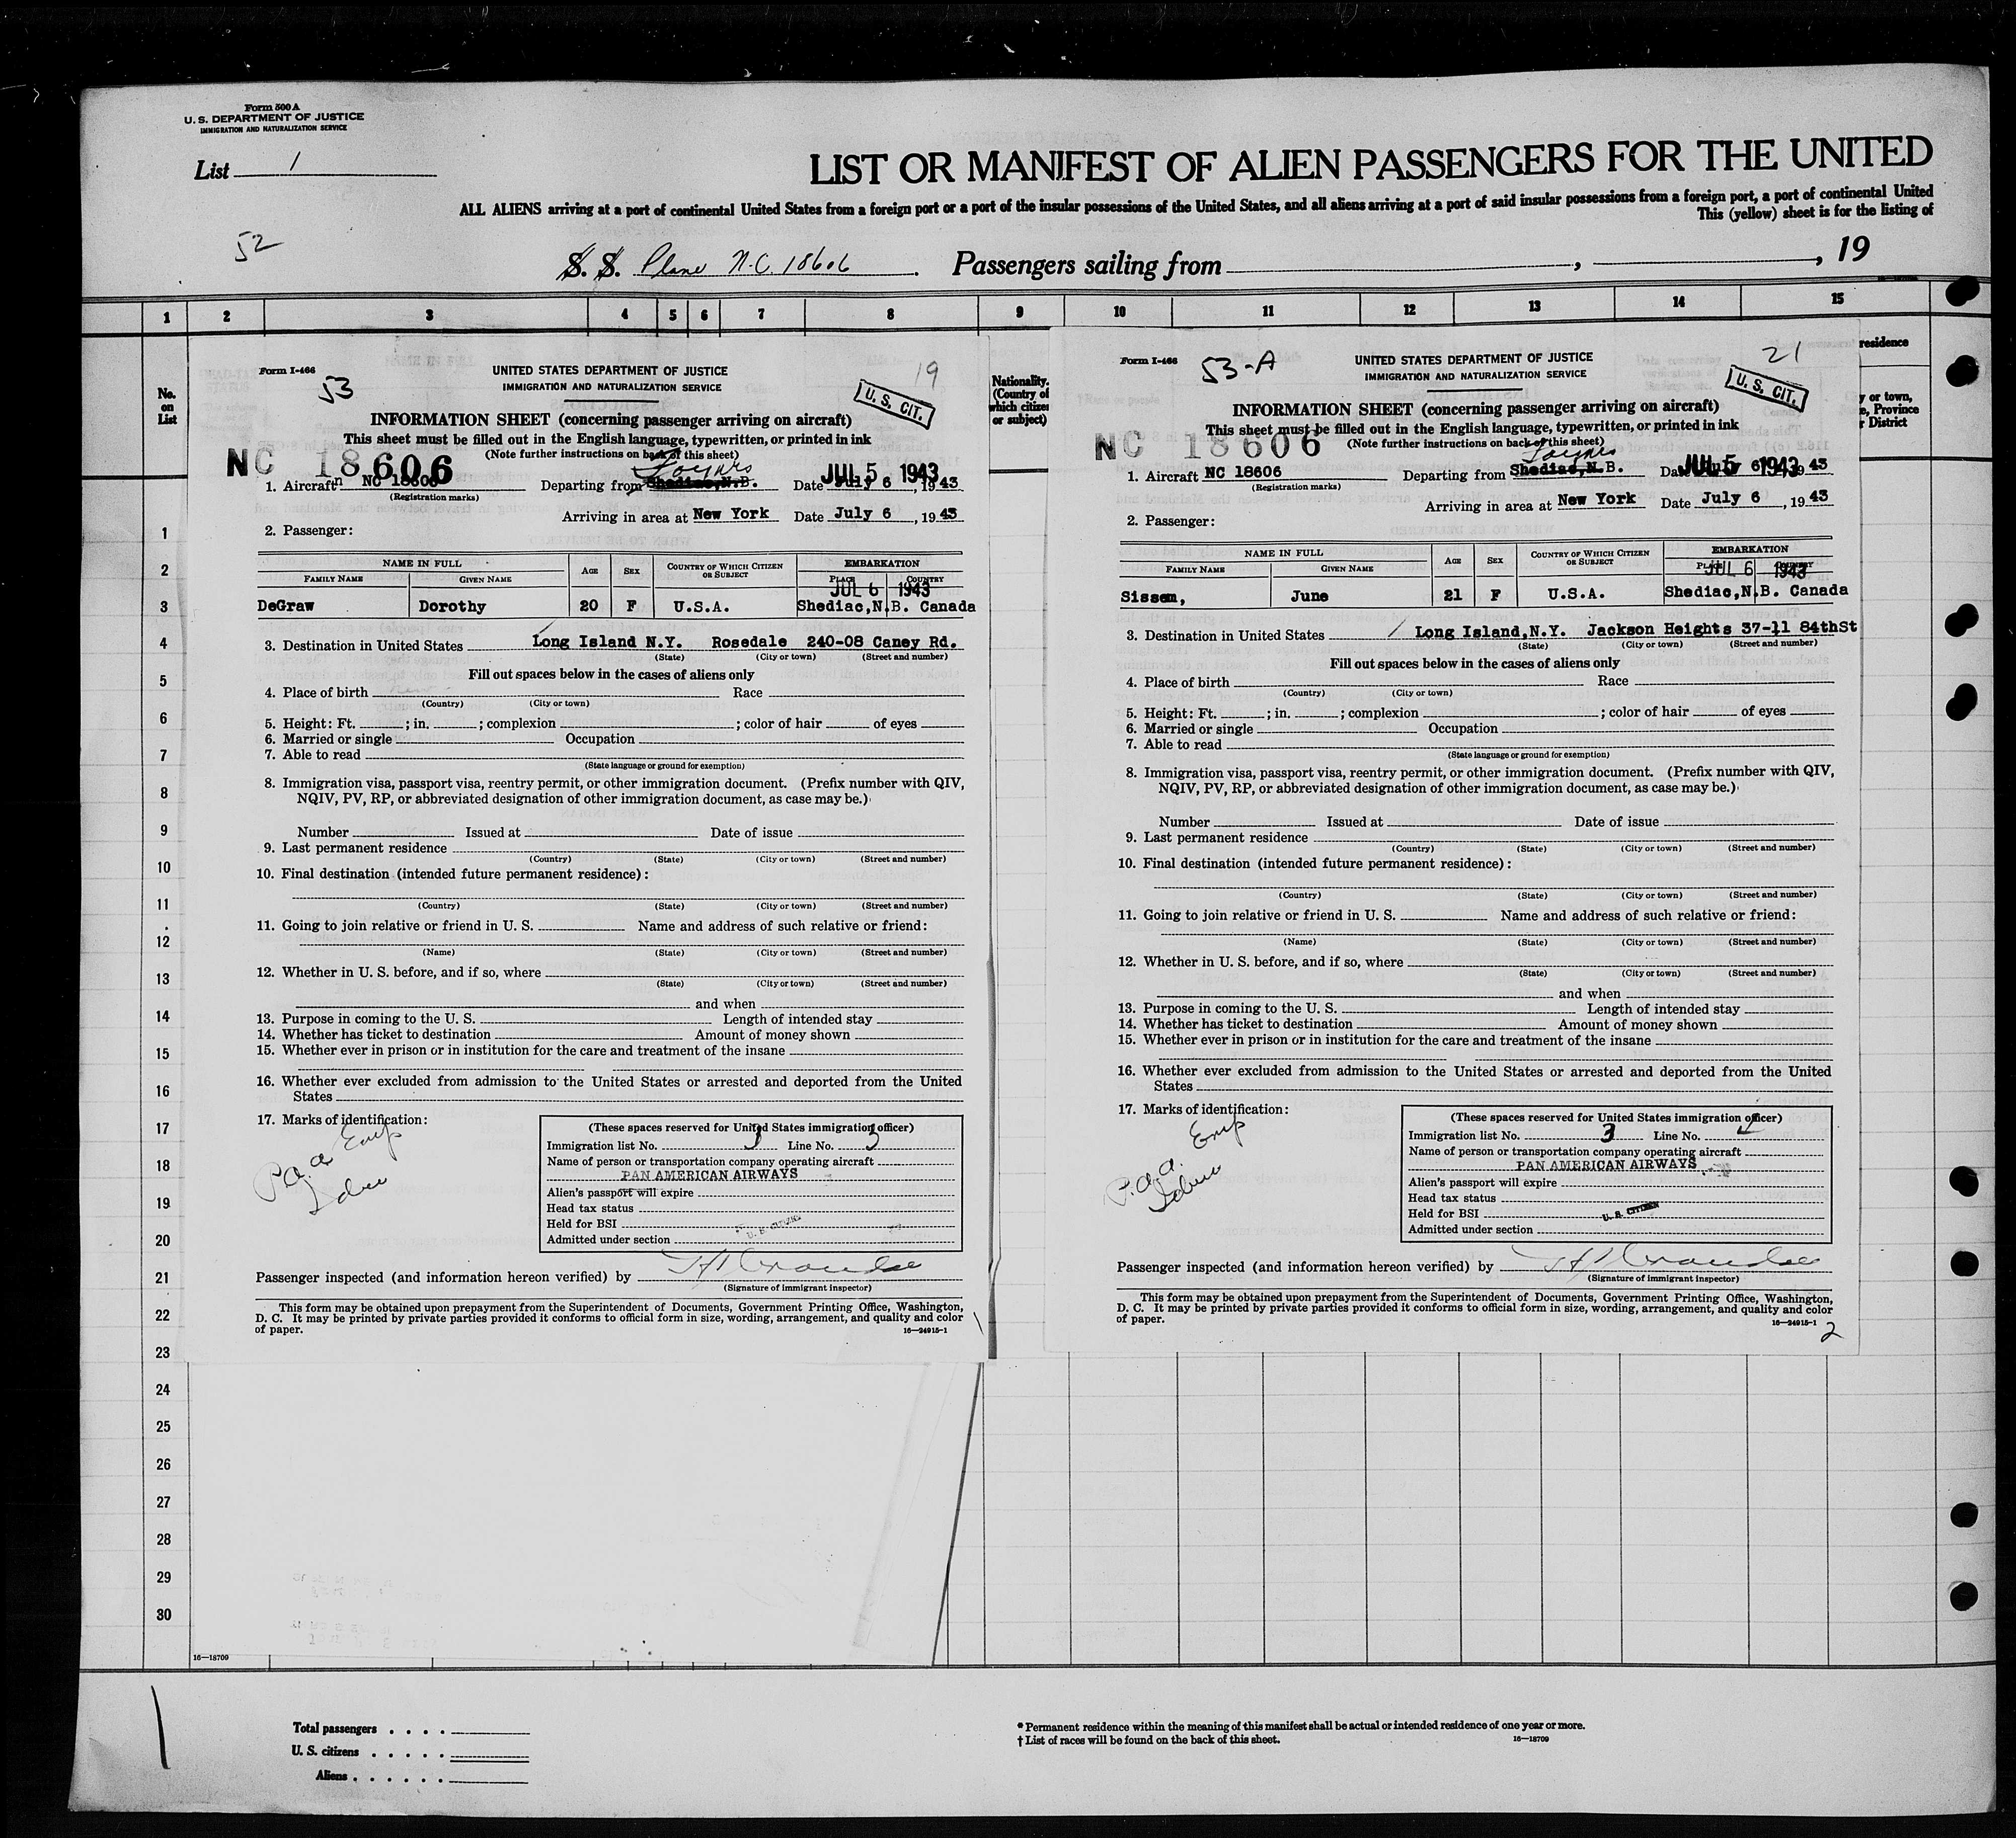 Form 500 A
U. S. DEPARTMENT OF JUSTICE
IMMIGRATION AND NATURALIZATION SERVICE
List 1
LIST OR MANIFEST OF ALIEN PASSENGERS FOR THE UNITED
ALL ALIENS arriving at a port of continental United States from a foreign port or a port of the insular possessions of the United States, and all aliens arriving at a port of said insular possessions from a foreign port, a port of continental United
This (yellow) sheet is for the listing of
52
S. S. Plane N.C. 18606. Passengers sailing from , , 19
1 2 3 4 5 6 7 8 9 10 11 12 13 14 15
No. on List
Nationality. (Country of which citizen or subject)
residence
y or town,
e, Province
r District
Form I-466
53
19
UNITED STATES DEPARTMENT OF JUSTICE
IMMIGRATION AND NATURALIZATION SERVICE
U. S. CIT.
INFORMATION SHEET (concerning passenger arriving on aircraft)
This sheet must be filled out in the English language, typewritten, or printed in ink
(Note further instructions on back of this sheet)
NC 18606
JUL 5 1943
1. Aircraft NC 18606 Departing from Shediac, N.B. Foynes Date July 6, 1943
(Registration marks)
Arriving in area at New York Date July 6, 1943
2. Passenger:
NAME IN FULL
FAMILY NAME GIVEN NAME AGE SEX COUNTRY OF WHICH CITIZEN OR SUBJECT EMBARKATION PLACE COUNTRY
JUL 6 1943
DeGraw Dorothy 20 F U.S.A. Shediac,N.B. Canada
3. Destination in United States Long Island N.Y. Rosedale 240-08 Caney Rd.
(State) (City or town) (Street and number)
Fill out spaces below in the cases of aliens only
4. Place of birth Race
(Country) (City or town)
5. Height: Ft. ; in. ; complexion ; color of hair of eyes
6. Married or single Occupation
7. Able to read
(State language or ground for exemption)
8. Immigration visa, passport visa, reentry permit, or other immigration document. (Prefix number with QIV,
NQIV, PV, RP, or abbreviated designation of other immigration document, as case may be.)
Number Issued at Date of issue
9. Last permanent residence
(Country) (State) (City or town) (Street and number)
10. Final destination (intended future permanent residence):
(Country) (State) (City or town) (Street and number)
11. Going to join relative or friend in U. S. Name and address of such relative or friend:
(Name) (State) (City or town) (Street and number)
12. Whether in U. S. before, and if so, where
(State) (City or town) (Street and number)
and when
13. Purpose in coming to the U. S. Length of intended stay
14. Whether has ticket to destination Amount of money shown
15. Whether ever in prison or in institution for the care and treatment of the insane
16. Whether ever excluded from admission to the United States or arrested and deported from the United
States
17. Marks of identification:
P.a.a. Emp
(These spaces reserved for United States immigration officer)
Immigration list No. 3 Line No. 3
Name of person or transportation company operating aircraft
PAN AMERICAN AIRWAYS
Alien's passport will expire
Head tax status
Held for BSI
U. S. CITIZEN
Admitted under section
Passenger inspected (and information hereon verified) by
(Signature of immigrant inspector)
This form may be obtained upon prepayment from the Superintendent of Documents, Government Printing Office, Washington,
D. C. It may be printed by private parties provided it conforms to official form in size, wording, arrangement, and quality and color
of paper.
16—24915-1
Form I-466
53-A
21
UNITED STATES DEPARTMENT OF JUSTICE
IMMIGRATION AND NATURALIZATION SERVICE
U. S. CIT.
INFORMATION SHEET (concerning passenger arriving on aircraft)
This sheet must be filled out in the English language, typewritten, or printed in ink
(Note further instructions on back of this sheet)
NC 18606
JUL 5 1943
1. Aircraft NC 18606 Departing from Shediac, N.B. Foynes Date July 6, 1943
(Registration marks)
Arriving in area at New York Date July 6, 1943
2. Passenger:
NAME IN FULL
FAMILY NAME GIVEN NAME AGE SEX COUNTRY OF WHICH CITIZEN OR SUBJECT EMBARKATION PLACE COUNTRY
JUL 6 1943
Sissen, June 21 F U.S.A. Shediac,N.B. Canada
3. Destination in United States Long Island,N.Y. Jackson Heights 37-11 84thSt
(State) (City or town) (Street and number)
Fill out spaces below in the cases of aliens only
4. Place of birth Race
(Country) (City or town)
5. Height: Ft. ; in. ; complexion ; color of hair of eyes
6. Married or single Occupation
7. Able to read
(State language or ground for exemption)
8. Immigration visa, passport visa, reentry permit, or other immigration document. (Prefix number with QIV,
NQIV, PV, RP, or abbreviated designation of other immigration document, as case may be.)
Number Issued at Date of issue
9. Last permanent residence
(Country) (State) (City or town) (Street and number)
10. Final destination (intended future permanent residence):
(Country) (State) (City or town) (Street and number)
11. Going to join relative or friend in U. S. Name and address of such relative or friend:
(Name) (State) (City or town) (Street and number)
12. Whether in U. S. before, and if so, where
(State) (City or town) (Street and number)
and when
13. Purpose in coming to the U. S. Length of intended stay
14. Whether has ticket to destination Amount of money shown
15. Whether ever in prison or in institution for the care and treatment of the insane
16. Whether ever excluded from admission to the United States or arrested and deported from the United
States
17. Marks of identification:
P.a.a. Emp
(These spaces reserved for United States immigration officer)
Immigration list No. 3 Line No.
Name of person or transportation company operating aircraft
PAN AMERICAN AIRWAYS
Alien's passport will expire
Head tax status
Held for BSI
U. S. CITIZEN
Admitted under section
Passenger inspected (and information hereon verified) by
(Signature of immigrant inspector)
This form may be obtained upon prepayment from the Superintendent of Documents, Government Printing Office, Washington,
D. C. It may be printed by private parties provided it conforms to official form in size, wording, arrangement, and quality and color
of paper.
16—24915-1
2
1
2
3
4
5
6
7
8
9
10
11
12
13
14
15
16
17
18
19
20
21
22
23
24
25
26
27
28
29
30
16—18709
Total passengers . . . .
U. S. citizens . . . . .
Aliens . . . . . .
* Permanent residence within the meaning of this manifest shall be actual or intended residence of one year or more.
† List of races will be found on the back of this sheet.
16—18709